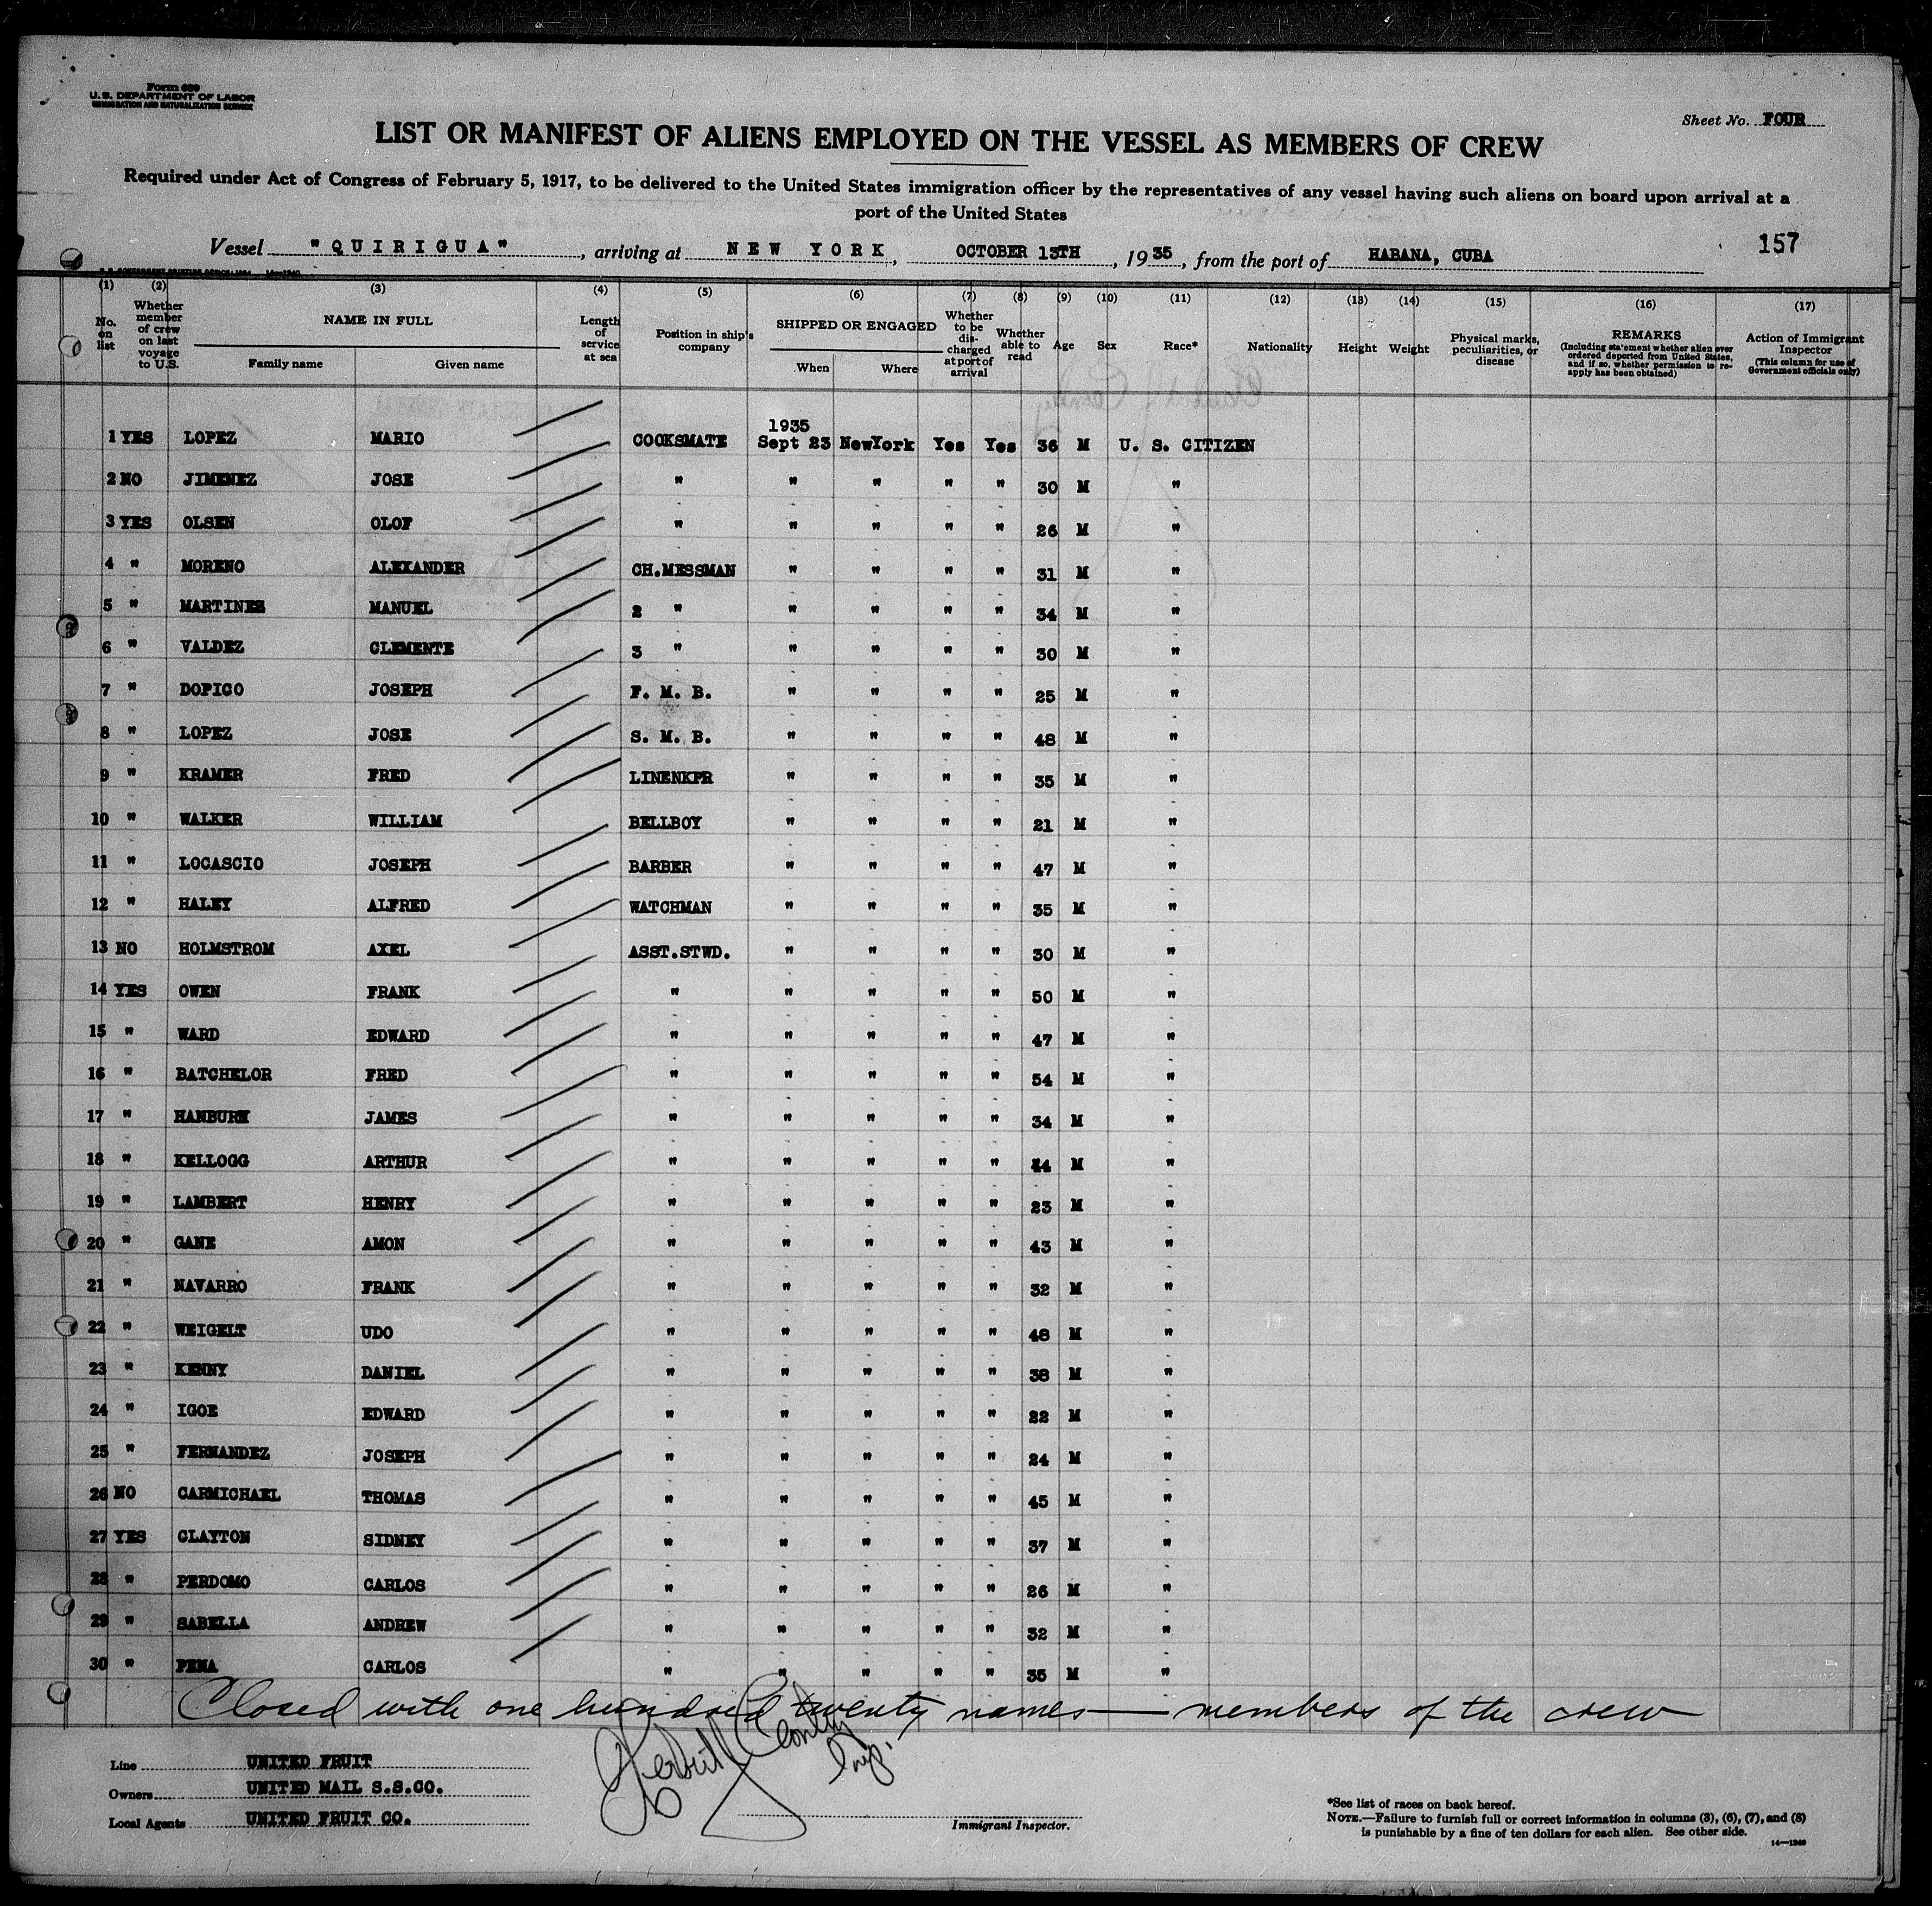 Form 680
U. S. DEPARTMENT OF LABOR
IMMIGRATION AND NATURALIZATION SERVICE
Sheet No. FOUR
LIST OR MANIFEST OF ALIENS EMPLOYED ON THE VESSEL AS MEMBERS OF CREW
Required under Act of Congress of February 5, 1917, to be delivered to the United States immigration officer by the representatives of any vessel having such aliens on board upon arrival at a
port of the United States
Vessel "QUIRIGUA", arriving at NEW YORK, OCTOBER 13TH, 1935, from the port of HABANA, CUBA
157
(1) (2) (3) (4) (5) (6) (7) (8) (9) (10) (11) (12) (13) (14) (15) (16) (17)
No. on list
Whether member of crew on last voyage to U.S.
NAME IN FULL
Family name Given name
Length of service at sea
Position in ship's company
SHIPPED OR ENGAGED
When Where
Whether to be discharged at port of arrival
Whether able to read
Age Sex Race* Nationality Height Weight
Physical marks, peculiarities, or disease
REMARKS
(Including statement whether alien ever ordered deported from United States, and if so, whether permission to re-apply has been obtained)
Action of Immigrant Inspector
(This column for use of Government officials only)
1935
1 YES LOPEZ MARIO COOKSMATE Sept 23 NewYork Yes Yes 36 M U. S. CITIZEN
2 NO JIMENEZ JOSE " " " " " 30 M "
3 YES OLSEN OLOF " " " " " 26 M "
4 " MORENO ALEXANDER CH.MESSMAN " " " " 31 M "
5 " MARTINEZ MANUEL 2 " " " " " 34 M "
6 " VALDEZ CLEMENTE 3 " " " " " 30 M "
7 " DOPICO JOSEPH F. M. B. " " " " 25 M "
8 " LOPEZ JOSE S. M. B. " " " " 48 M "
9 " KRAMER FRED LINENKPR " " " " 35 M "
10 " WALKER WILLIAM BELLBOY " " " " 21 M "
11 " LOCASCIO JOSEPH BARBER " " " " 47 M "
12 " HALEY ALFRED WATCHMAN " " " " 35 M "
13 NO HOLMSTROM AXEL ASST.STWD. " " " " 30 M "
14 YES OWEN FRANK " " " " " 50 M "
15 " WARD EDWARD " " " " " 47 M "
16 " BATCHELOR FRED " " " " " 54 M "
17 " HANBURY JAMES " " " " " 34 M "
18 " KELLOGG ARTHUR " " " " " M "
19 " LAMBERT HENRY " " " " " 23 M "
20 " GANE AMON " " " " " 43 M "
21 " NAVARRO FRANK " " " " " 32 M "
22 " WEIGELT UDO " " " " " 48 M "
23 " KENNY DANIEL " " " " " 38 M "
24 " IGOE EDWARD " " " " " 22 M "
25 " FERNANDEZ JOSEPH " " " " " 24 M "
26 NO CARMICHAEL THOMAS " " " " " 45 M "
27 YES CLAYTON SIDNEY " " " " " 37 M "
28 " PERDOMO CARLOS " " " " " 26 M "
29 " SABELLA ANDREW " " " " " 32 M "
30 " PENA CARLOS " " " " " 35 M "
Closed with one hundred twenty names — members of the crew
Insp.
Line UNITED FRUIT
Owners UNITED MAIL S.S.CO.
Local Agents UNITED FRUIT CO.
Immigrant Inspector.
*See list of races on back hereof.
NOTE.—Failure to furnish full or correct information in columns (3), (6), (7), and (8)
is punishable by a fine of ten dollars for each alien. See other side.
14—1240